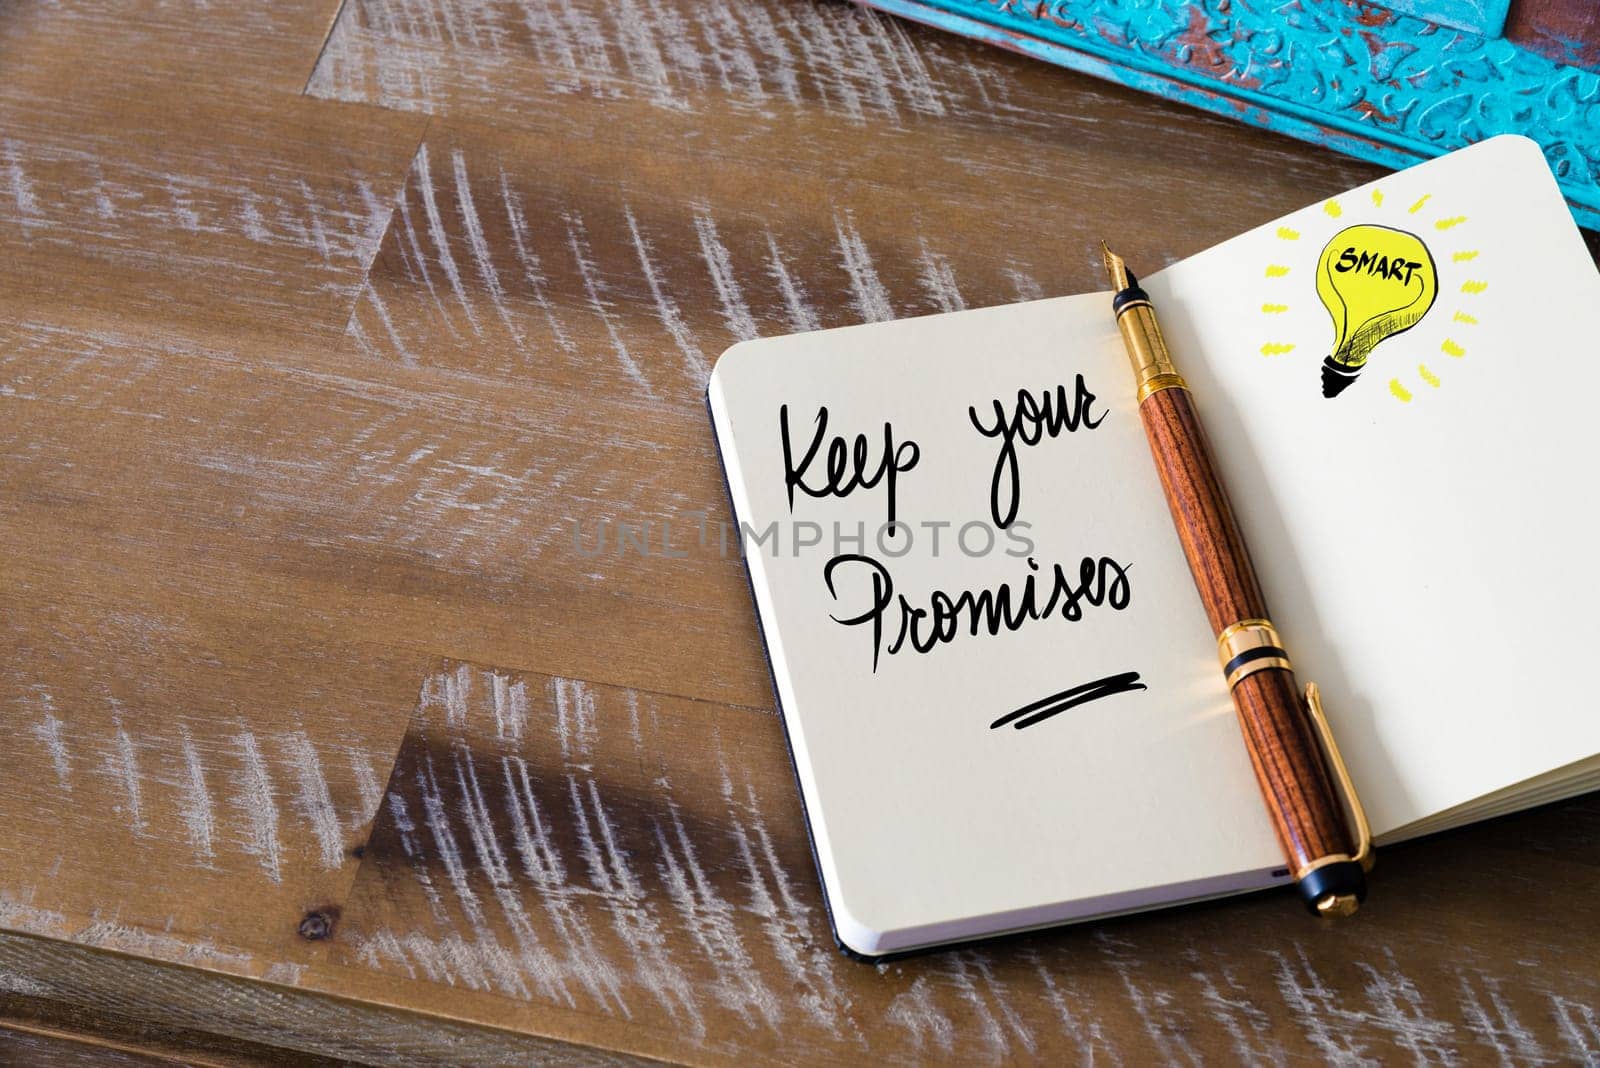 SMART
Keep your
Promises
UNLIMPHOTOS